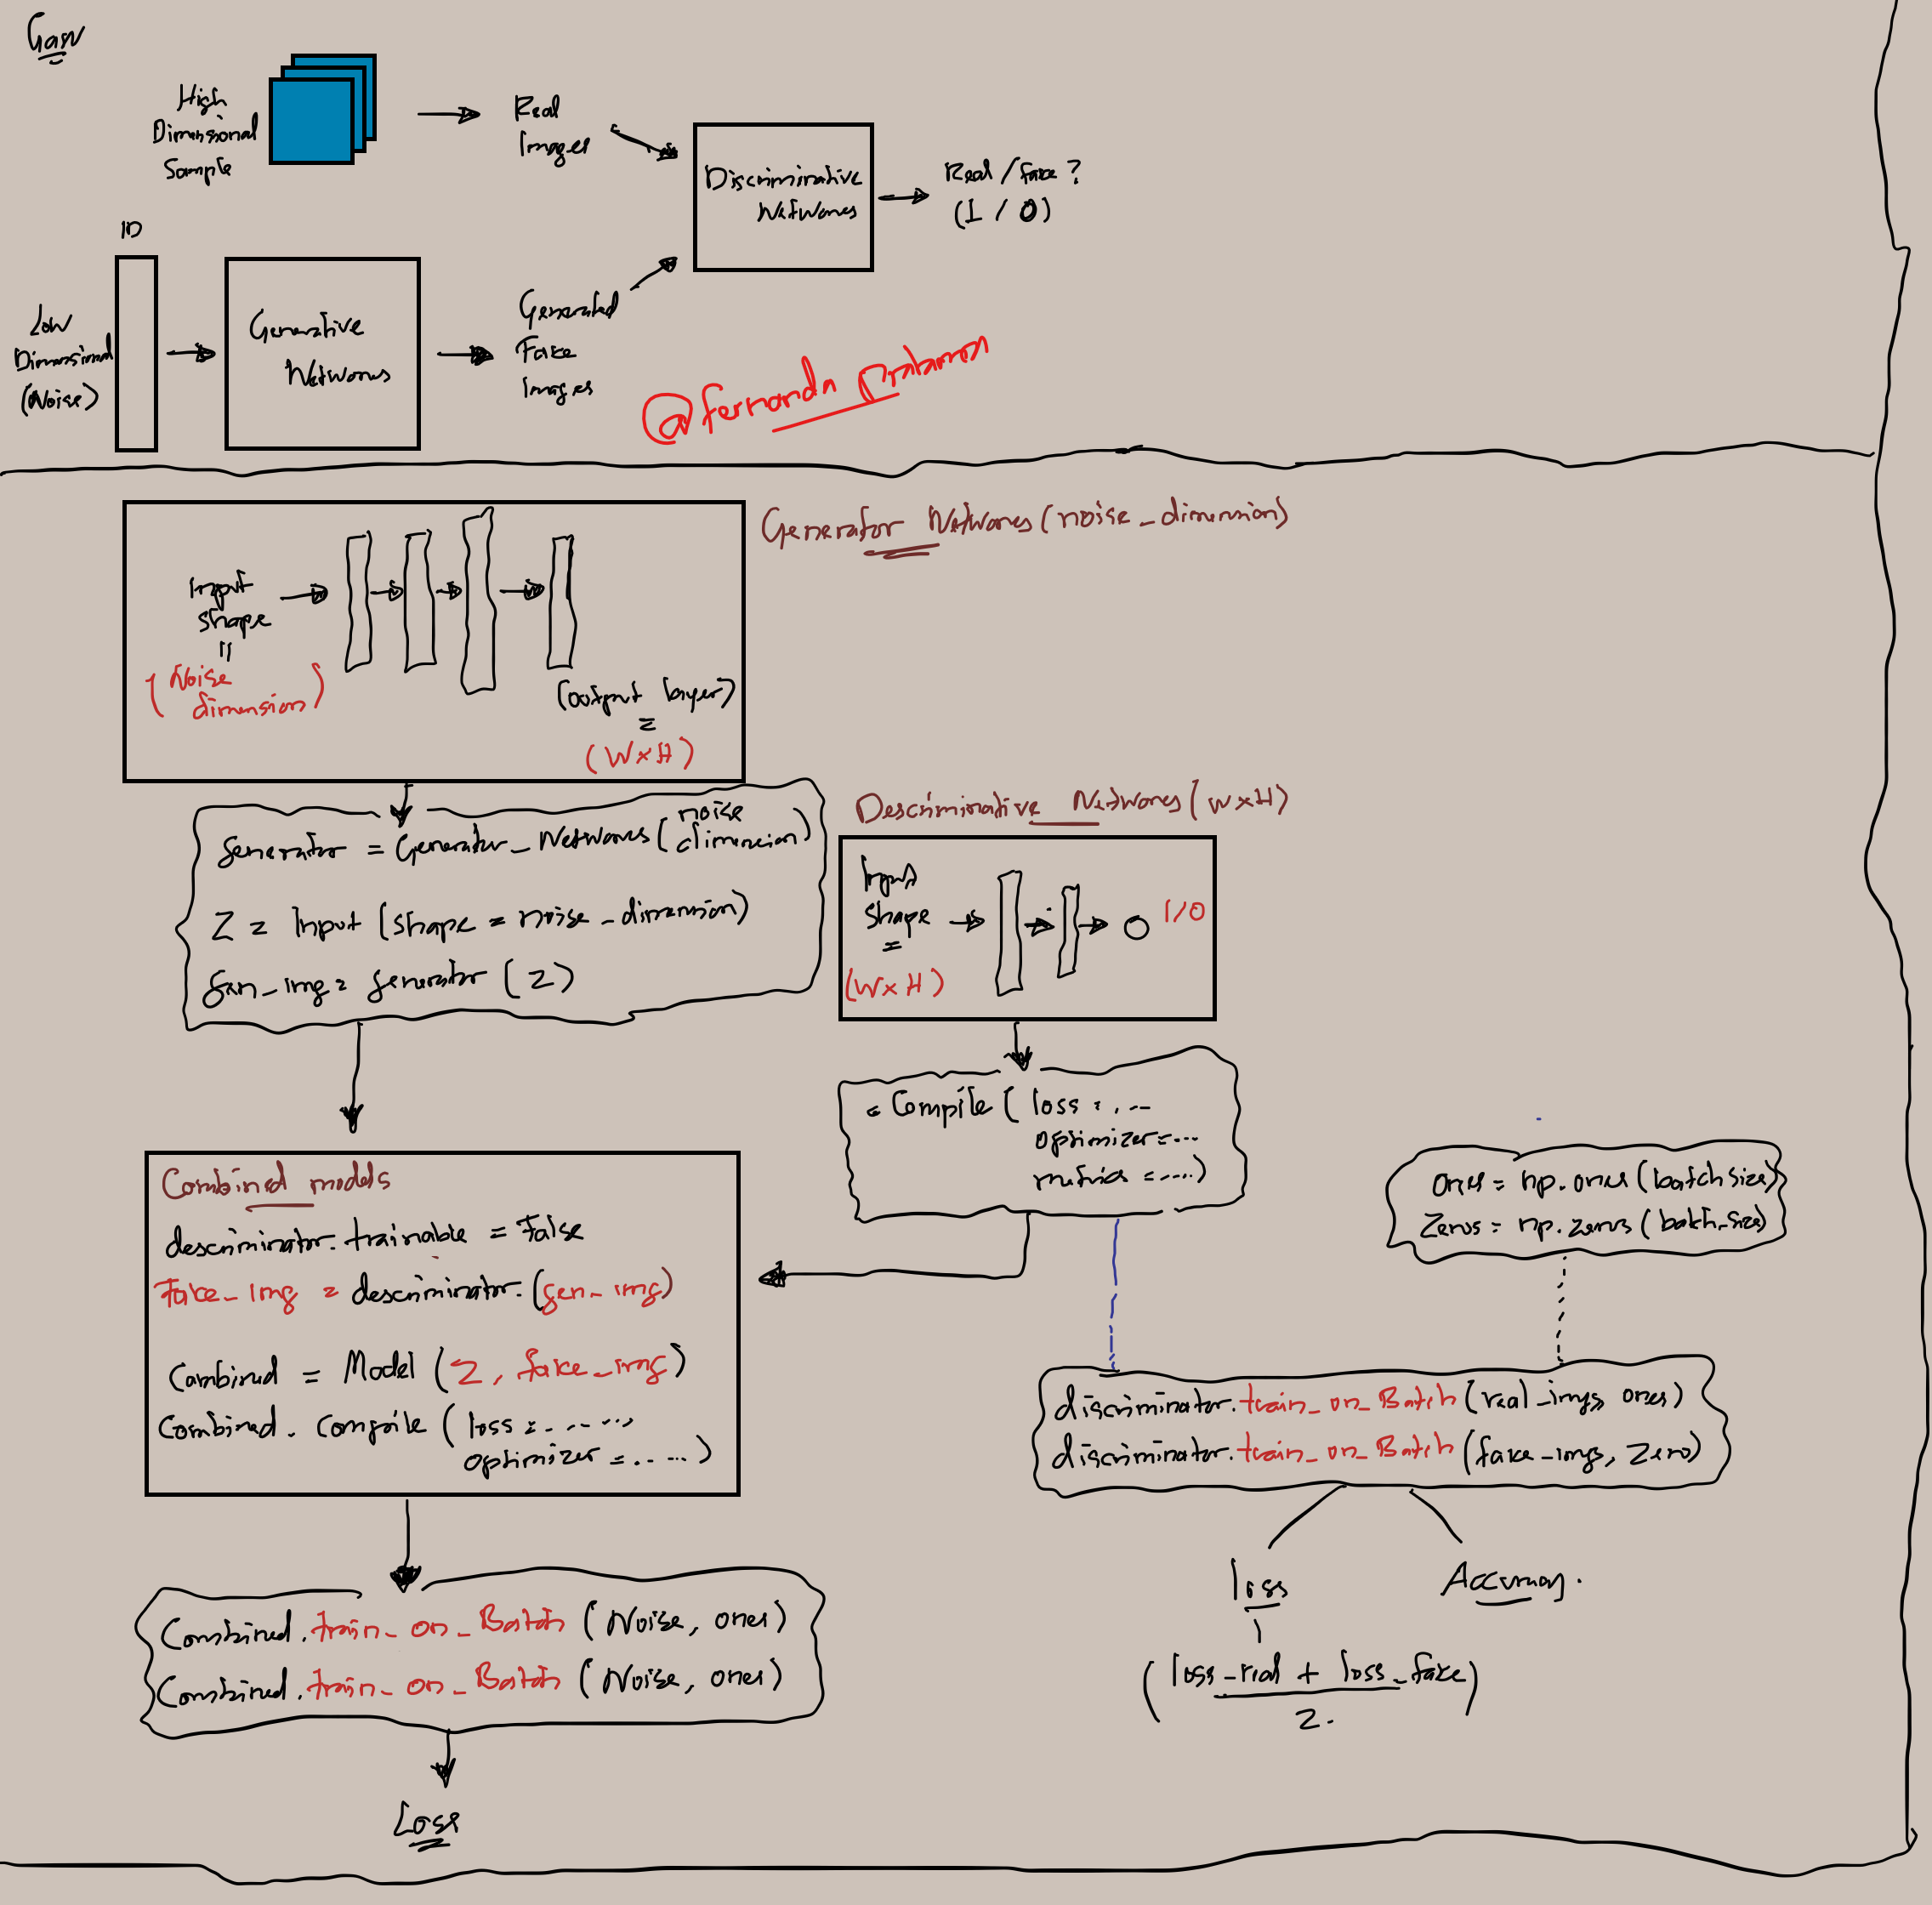 Gan
High
Dimensional
Sample
Real
Images
Discriminative
Networks
Real / fake ?
(1 / 0)
1D
Low
Dimensional
(Noise)
Generative
Networks
Generated
Fake
Images
@fernanda pratama
Generator Networks (noise_dimension)
Input
shape
=
(Noise
dimension)
(output layer)
=
(W x H)
generator = Generator_Networks (noise
dimension)
Z = Input (shape = noise_dimension)
gen_img = generator (Z)
Descriminative Networks (W x H)
Input
shape
=
(W x H)
1/0
= Compile ( loss = ....
optimizer = ....
metrics = ....)
ones = np.ones (batch size)
Zeros = np.zeros (batch_size)
Combined models
descriminator.trainable = False
Fake_img = descriminator.(gen_img)
Combined = Model (Z, fake_img)
Combined. Compile ( loss = ......
optimizer = ......)
discriminator.train_on_Batch (real_imgs, ones)
discriminator.train_on_Batch (fake_imgs, zero)
loss
Accuracy.
(loss_real + loss_fake)
2.
Combined.train_on_Batch (Noise, ones)
Combined.train_on_Batch (Noise, ones)
Loss